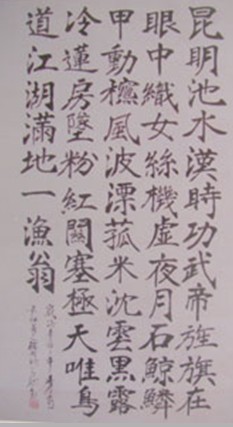 昆明池水漢時功武帝旌旗在
眼中織女絲機虛夜月石鯨鱗
甲動穐風波漂菰米沈雲黑露
冷蓮房墜粉紅關塞極天唯鳥
道江湖滿地一漁翁